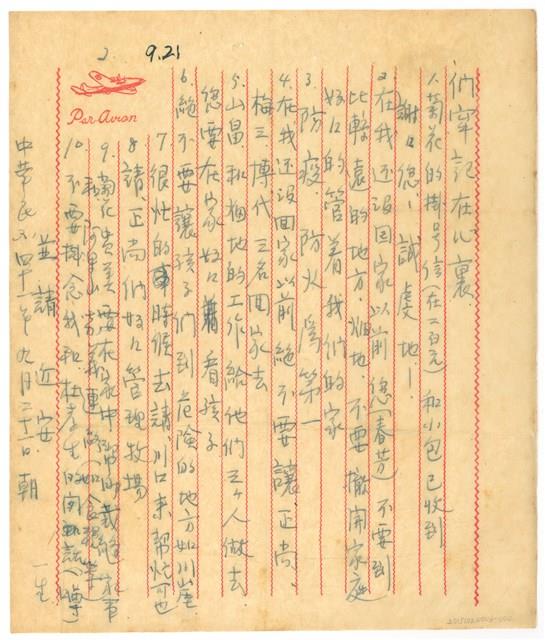 2.
9.21
Par Avion
們牢記在心裏
1.菊花的掛号信(在二百元)和小包已收到
謝〻您!誠虔地!
2.在我还没回家以前您(春芳)不要到
比較遠的地方.畑地.不要撇開家庭
好好的管着我們的家
3.防疫.防火為第一
4.在我还没回家以前絕不要讓正尚、
梅三博代三名回家去
5.山畠和畑地的工作給他們三ヶ人做去
您要在家好好看孩子
6.絕不要讓孩子們到危險的地方如川山崖
7.很忙的時候去請川口来帮忙也可
8.請正尚們好好管理牧場
9.菊花貴美要在家中帮助裁縫家事
和阿里山常義連絡(如食糧等)
10.不要掛念我和杜孝生的
並請 近安 一生
中華民国四十一年九月二十二日.朝